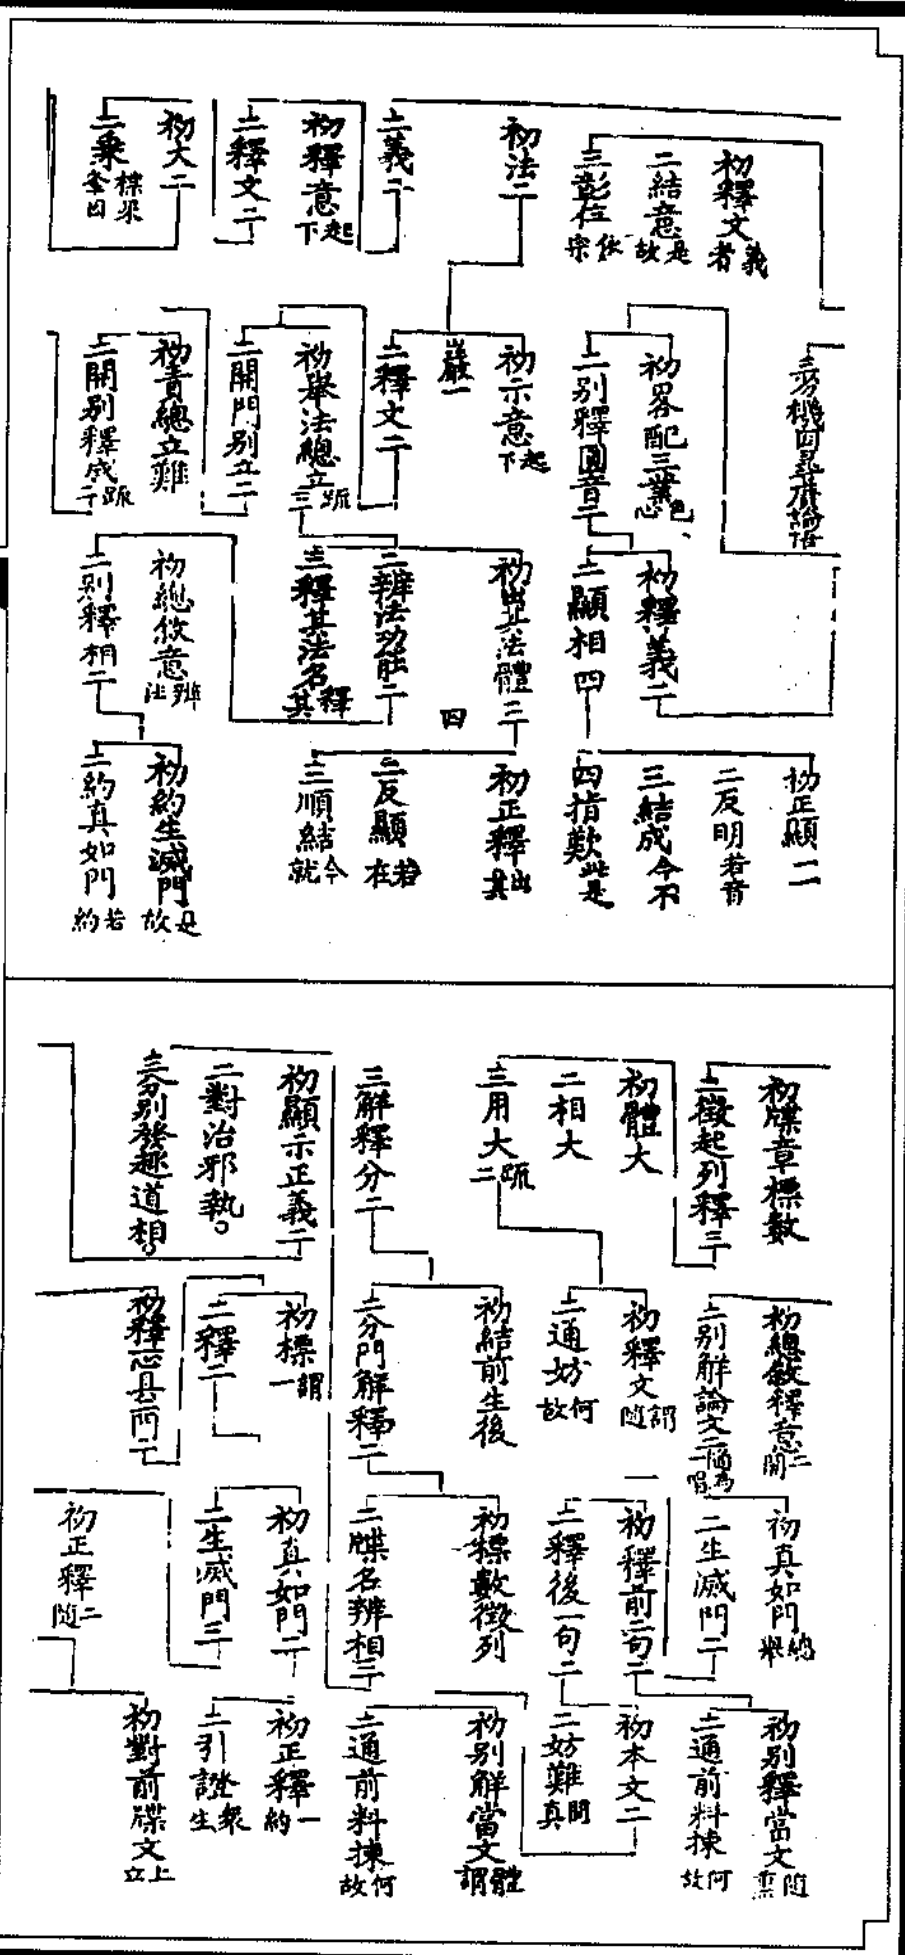 初釋文義者
二結意是故
三彰位依宗
初法二
二義二
初釋意起下
二釋文二
初大二
二乘
初畧配三業
二別釋圓音二
初示意起下
嚴一
二釋文二
初舉法總立疏三
二開門別立二
初責總立難
二開別釋成疏二
初釋義二
二顯相四
初出其法體三
四
二辨法功能二
三釋其法名釋其
初總敘意
二別釋相二
初正顯二
二反明若音
三結成今不
四指歎此是
初正釋出其
二反顯若在
三順結今就
初約生滅門是故
二約真如門若約
初牒章標數
二徵起列釋三
初體大
二相大
三用大疏二
三解釋分二
初顯示正義二
二對治邪執。
三分別發趣道相。
初總敘釋意二開
二別解論文二
初釋文謂隨
二通妨何故
初結前生後
二分門解釋二
初標謂一
二釋二
初真如門總
二生滅門二
一
初釋前二句二
二釋後一句二
初標數徵列
二牒名辨相三
初真如門二
二生滅門三
初正釋二隨
初別釋當文
二通前料揀何故
初本文二
二妨難問真
初別解當文體謂
二通前料揀何故
初正釋一約
二引證眾生
初對前牒文上立